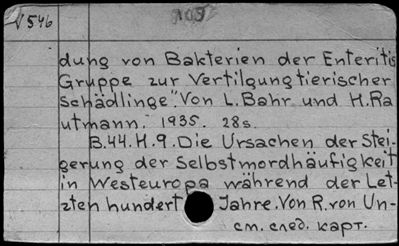 V 546
dung von Bakterien der Enteritis
Gruppe zur Vertilgung tierischer
Schädlinge". Von L. Bahr und H. Ra
utmann. 1935. 28s.
B.44.H.9. Die Ursachen der Stei-
gerung der Selbstmordhäufigkeit
in Westeuropa während der Let-
zten hundert Jahre. Von R. von Un-
см. след. карт.